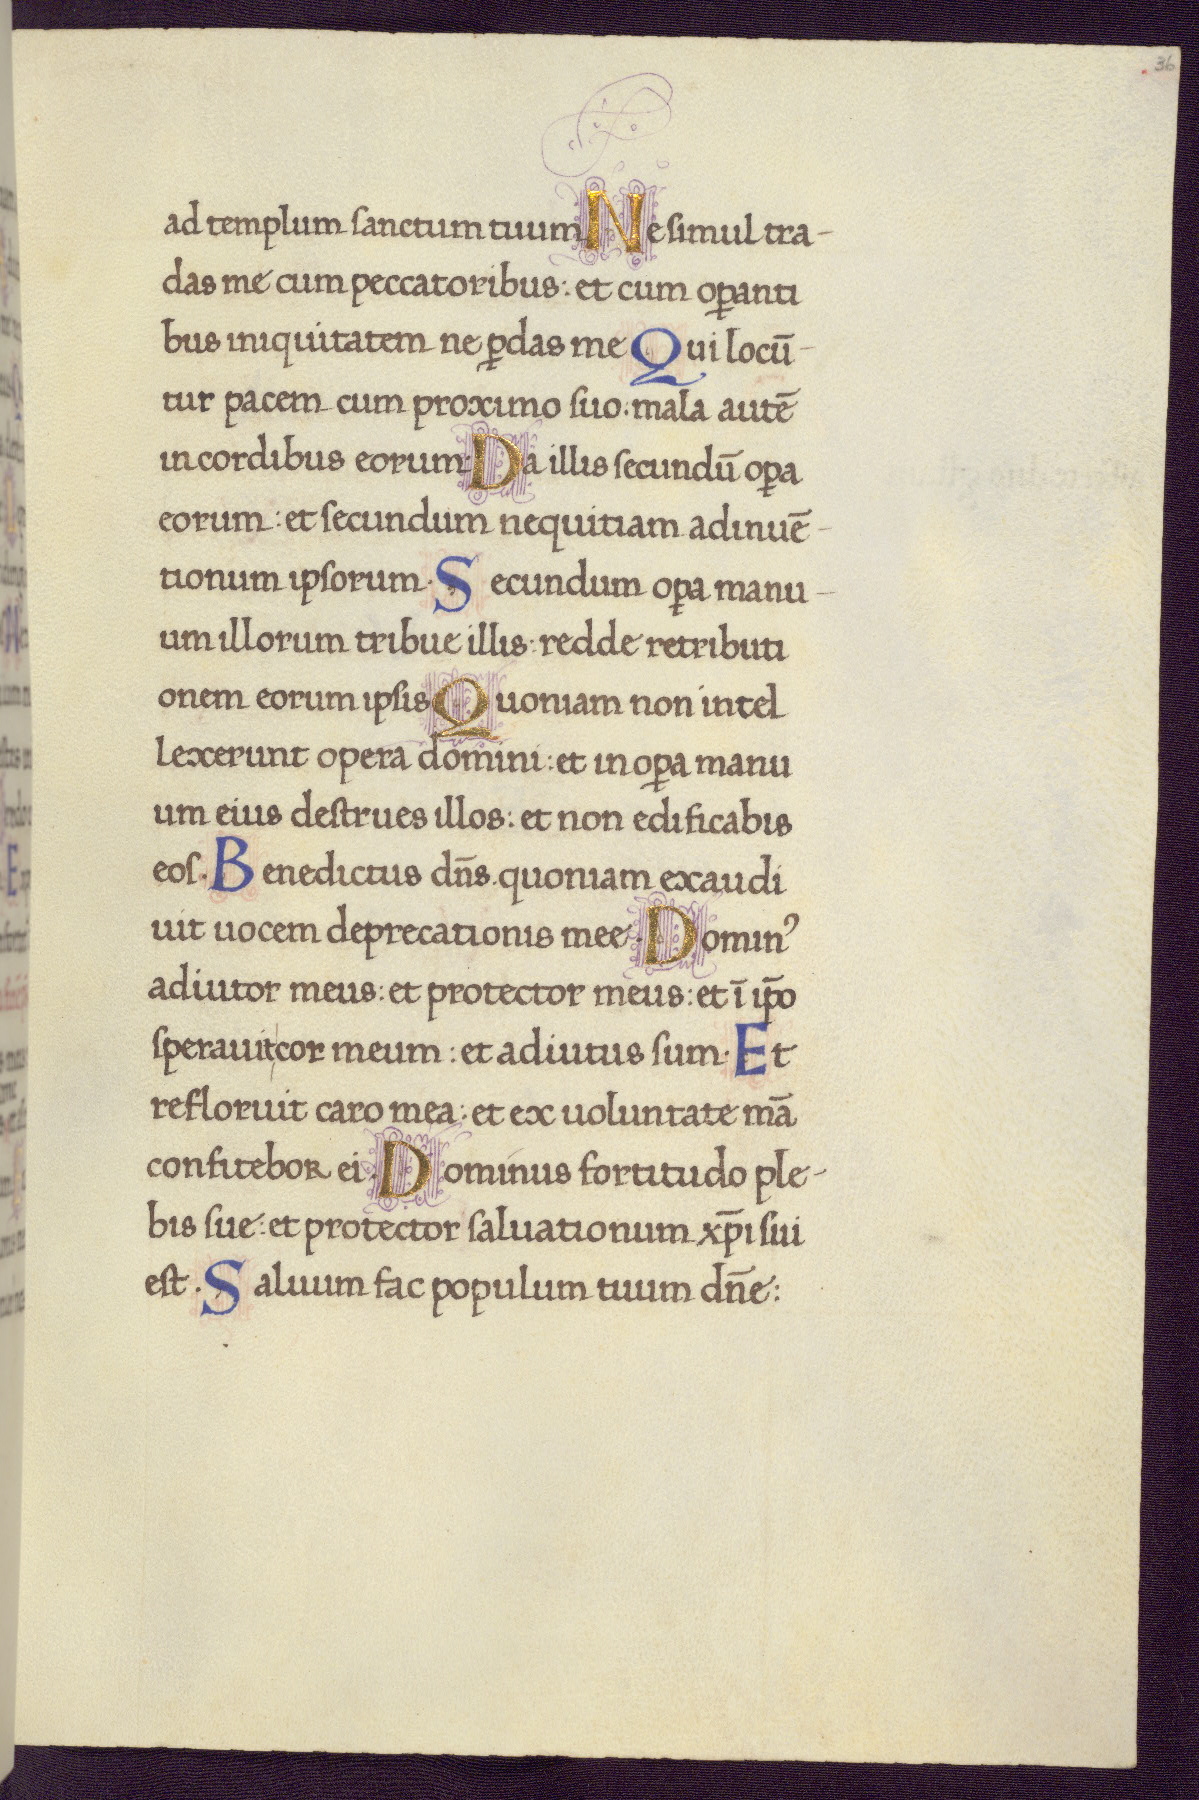 36
ad templum sanctum tuum Ne simul tra-
das me cum peccatoribus: et cum oꝑanti
bus iniquitatem ne ꝑdas me Qui locū-
tur pacem cum proximo suo: mala autē
in cordibus eorum· Da illis secundū oꝑa
eorum: et secundum nequitiam adinuē-
tionum ipsorum· Secundum oꝑa manu-
um illorum tribue illis: redde retributi
onem eorum ipsis Quoniam non intel
lexerunt opera domini: et in oꝑa manu
um eius destrues illos: et non edificabis
eos. Benedictus dn̄s. quoniam exaudi
uit uocem deprecationis mee· Dominꝰ
adiutor meus: et protector meus: et ī ip̄o
sperauit cor meum: et adiutus sum· Et
refloruit caro mea: et ex uoluntate mā
confitebor ei· Dominus fortitudo ple-
bis sue: et protector saluationum xp̄i sui
est. Saluum fac populum tuum dn̄e: